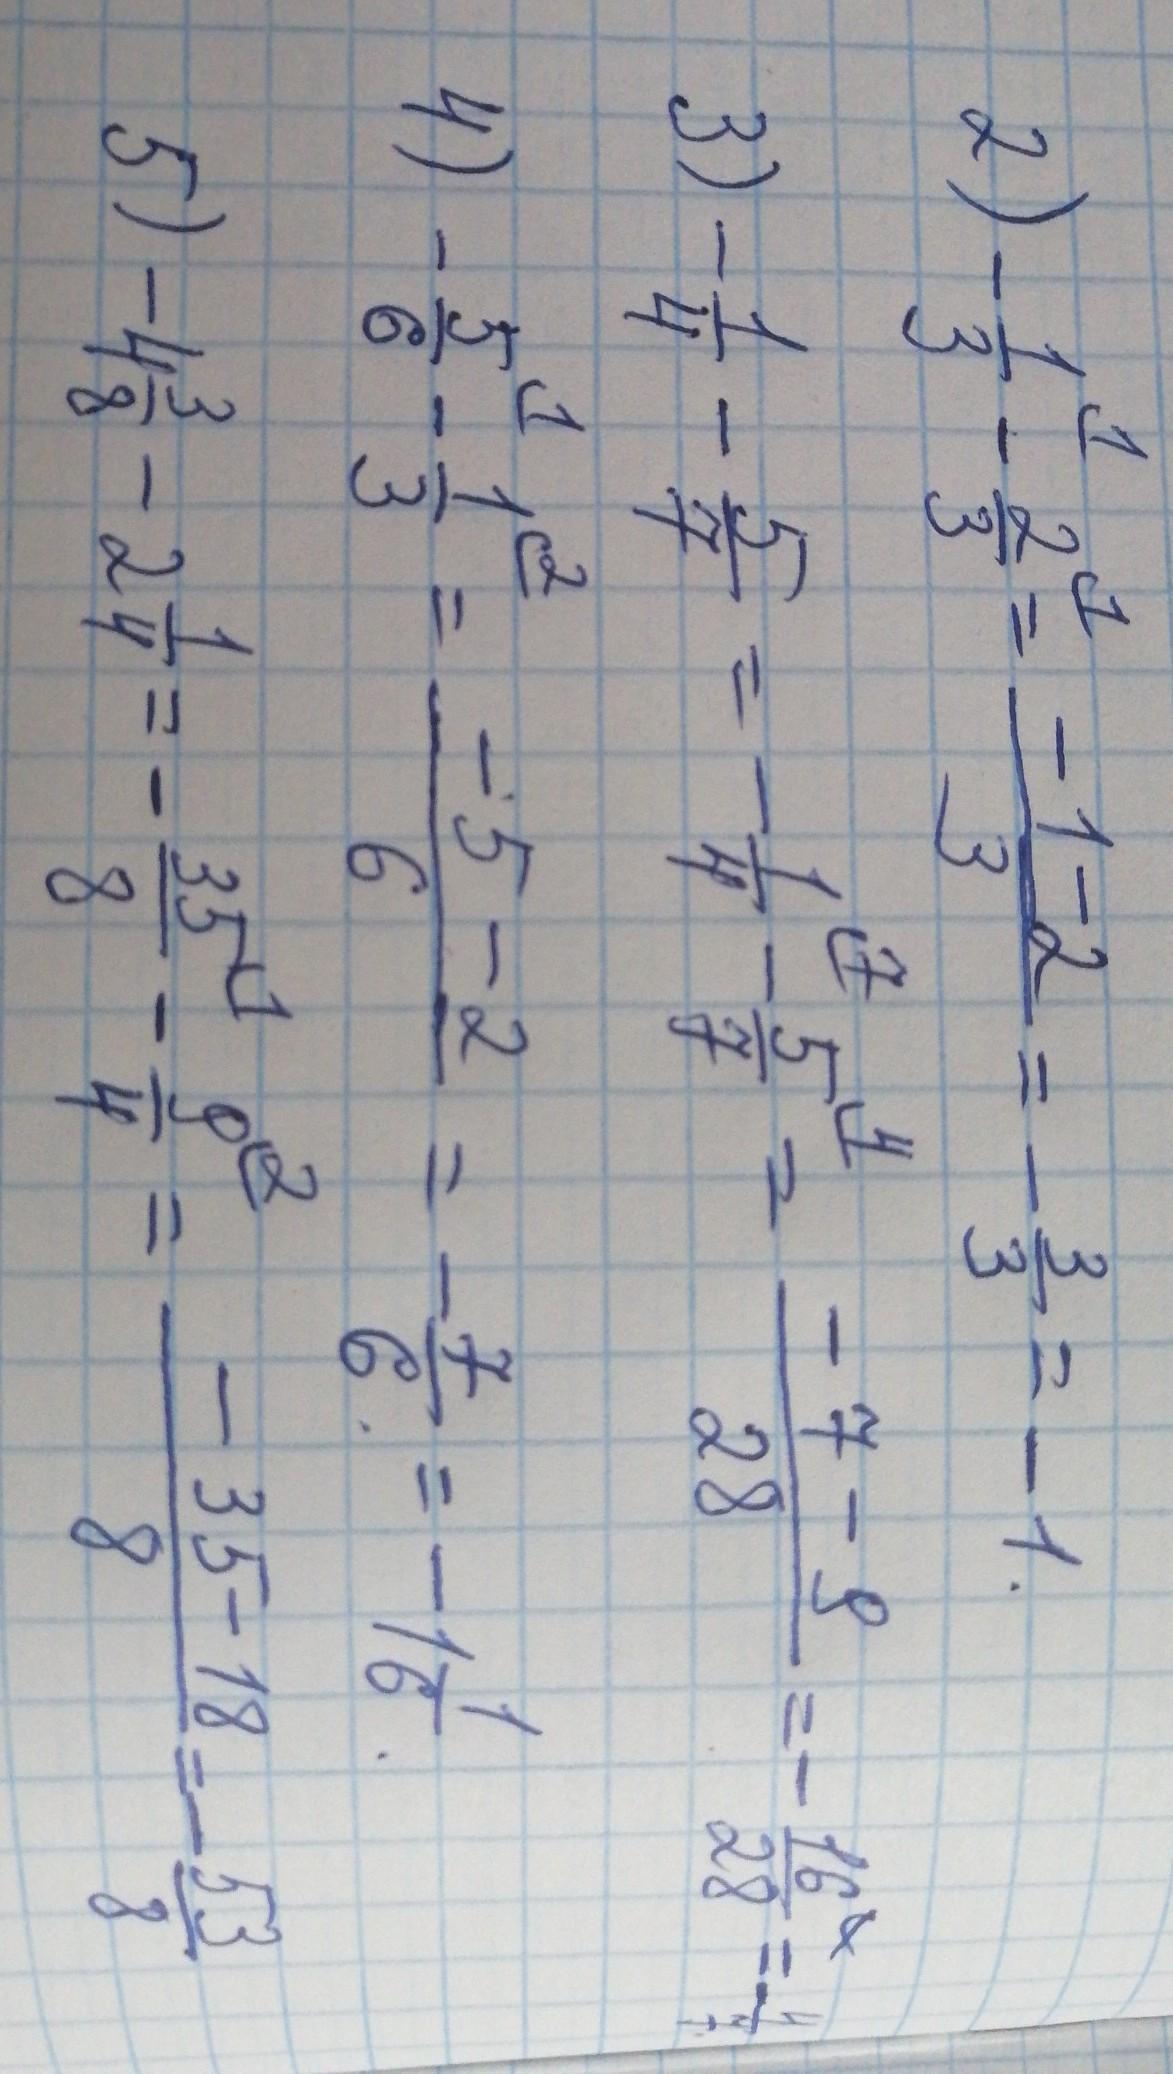 2) -1/3 ⌣1 - 2/3 ⌣1 = (-1-2)/3 = -3/3 = -1.
3) -1/4 - 5/7 = -1/4 ⌣7 - 5/7 ⌣4 = (-7-9)/28 = -16/28 4 = -4/7
4) -5/6 ⌣1 - 1/3 ⌣2 = (-5-2)/6 = -7/6 = -1 1/6.
5) -4 3/8 - 2 1/4 = -35/8 ⌣1 - 9/4 ⌣2 = (-35-18)/8 = -53/8